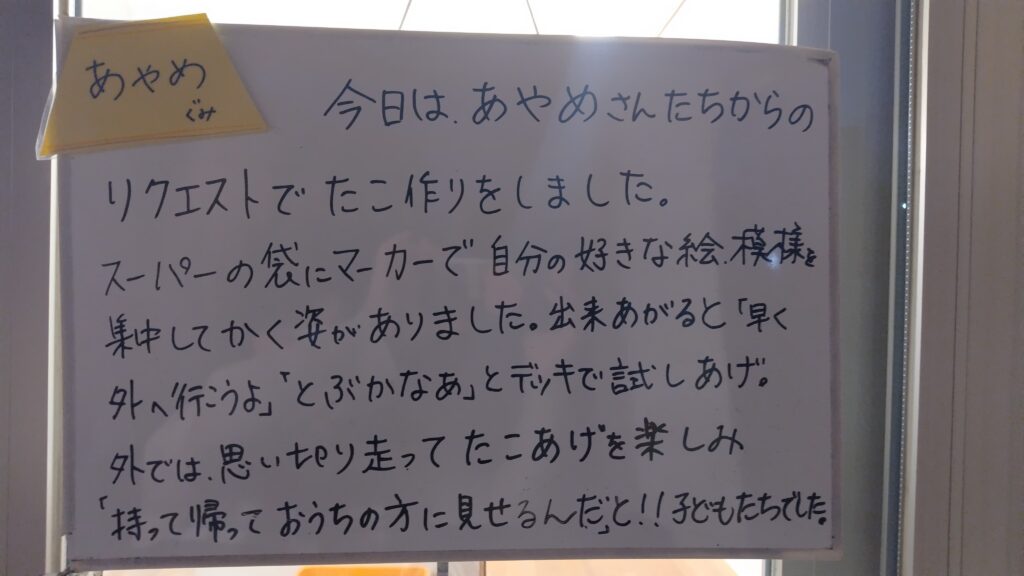 あやめ
ぐみ
今日は、あやめさんたちからの
リクエストでたこ作りをしました。
スーパーの袋にマーカーで自分の好きな絵、模様を
集中してかく姿がありました。出来あがると「早く
外へ行こうよ」「とぶかなあ」とデッキで試しあげ。
外では、思い切り走ってたこあげを楽しみ
「持って帰っておうちの方に見せるんだ」と!!子どもたちでした。